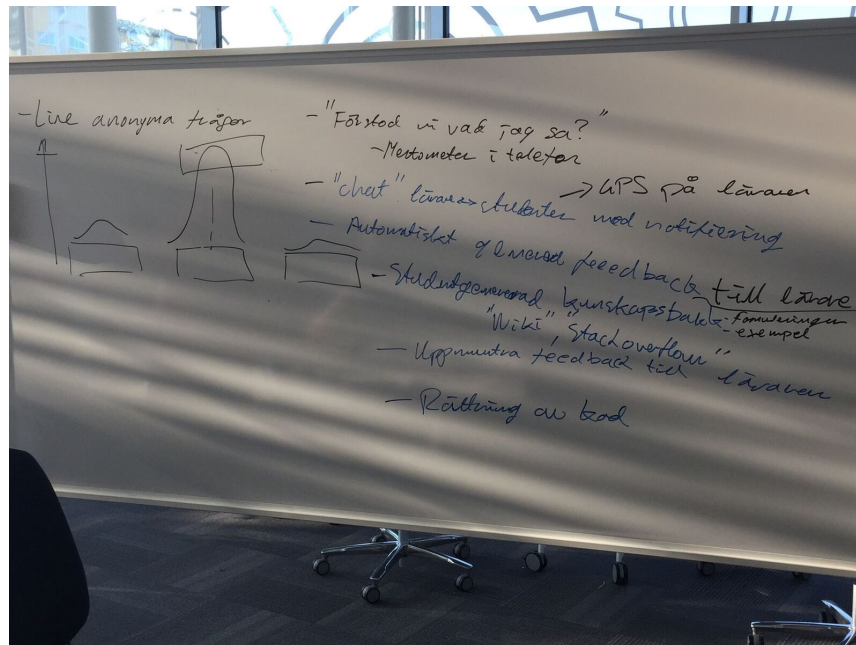 - Live anonyma frågor
- "Förstod ni vad jag sa?"
- Mentometer i telefon
→ GPS på läraren
- "chat" lärare studenter med notifiering
- Automatiskt genererad feedback till lärare
- formuleringar
- exempel
- Studentgenererad kunskapsbank
"Wiki", "Stackoverflow"
- Uppmuntra feedback till läraren
- Rättning av kod